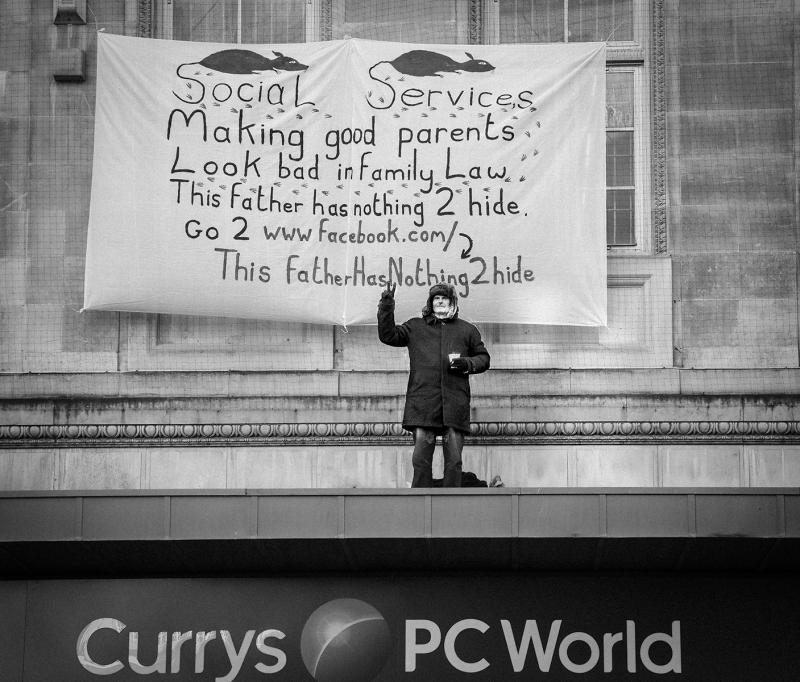 Social Services
Making good parents
Look bad in Family Law
This Father has nothing 2 hide.
Go 2 www.facebook.com/
This FatherHasNothing2hide
Currys PC World